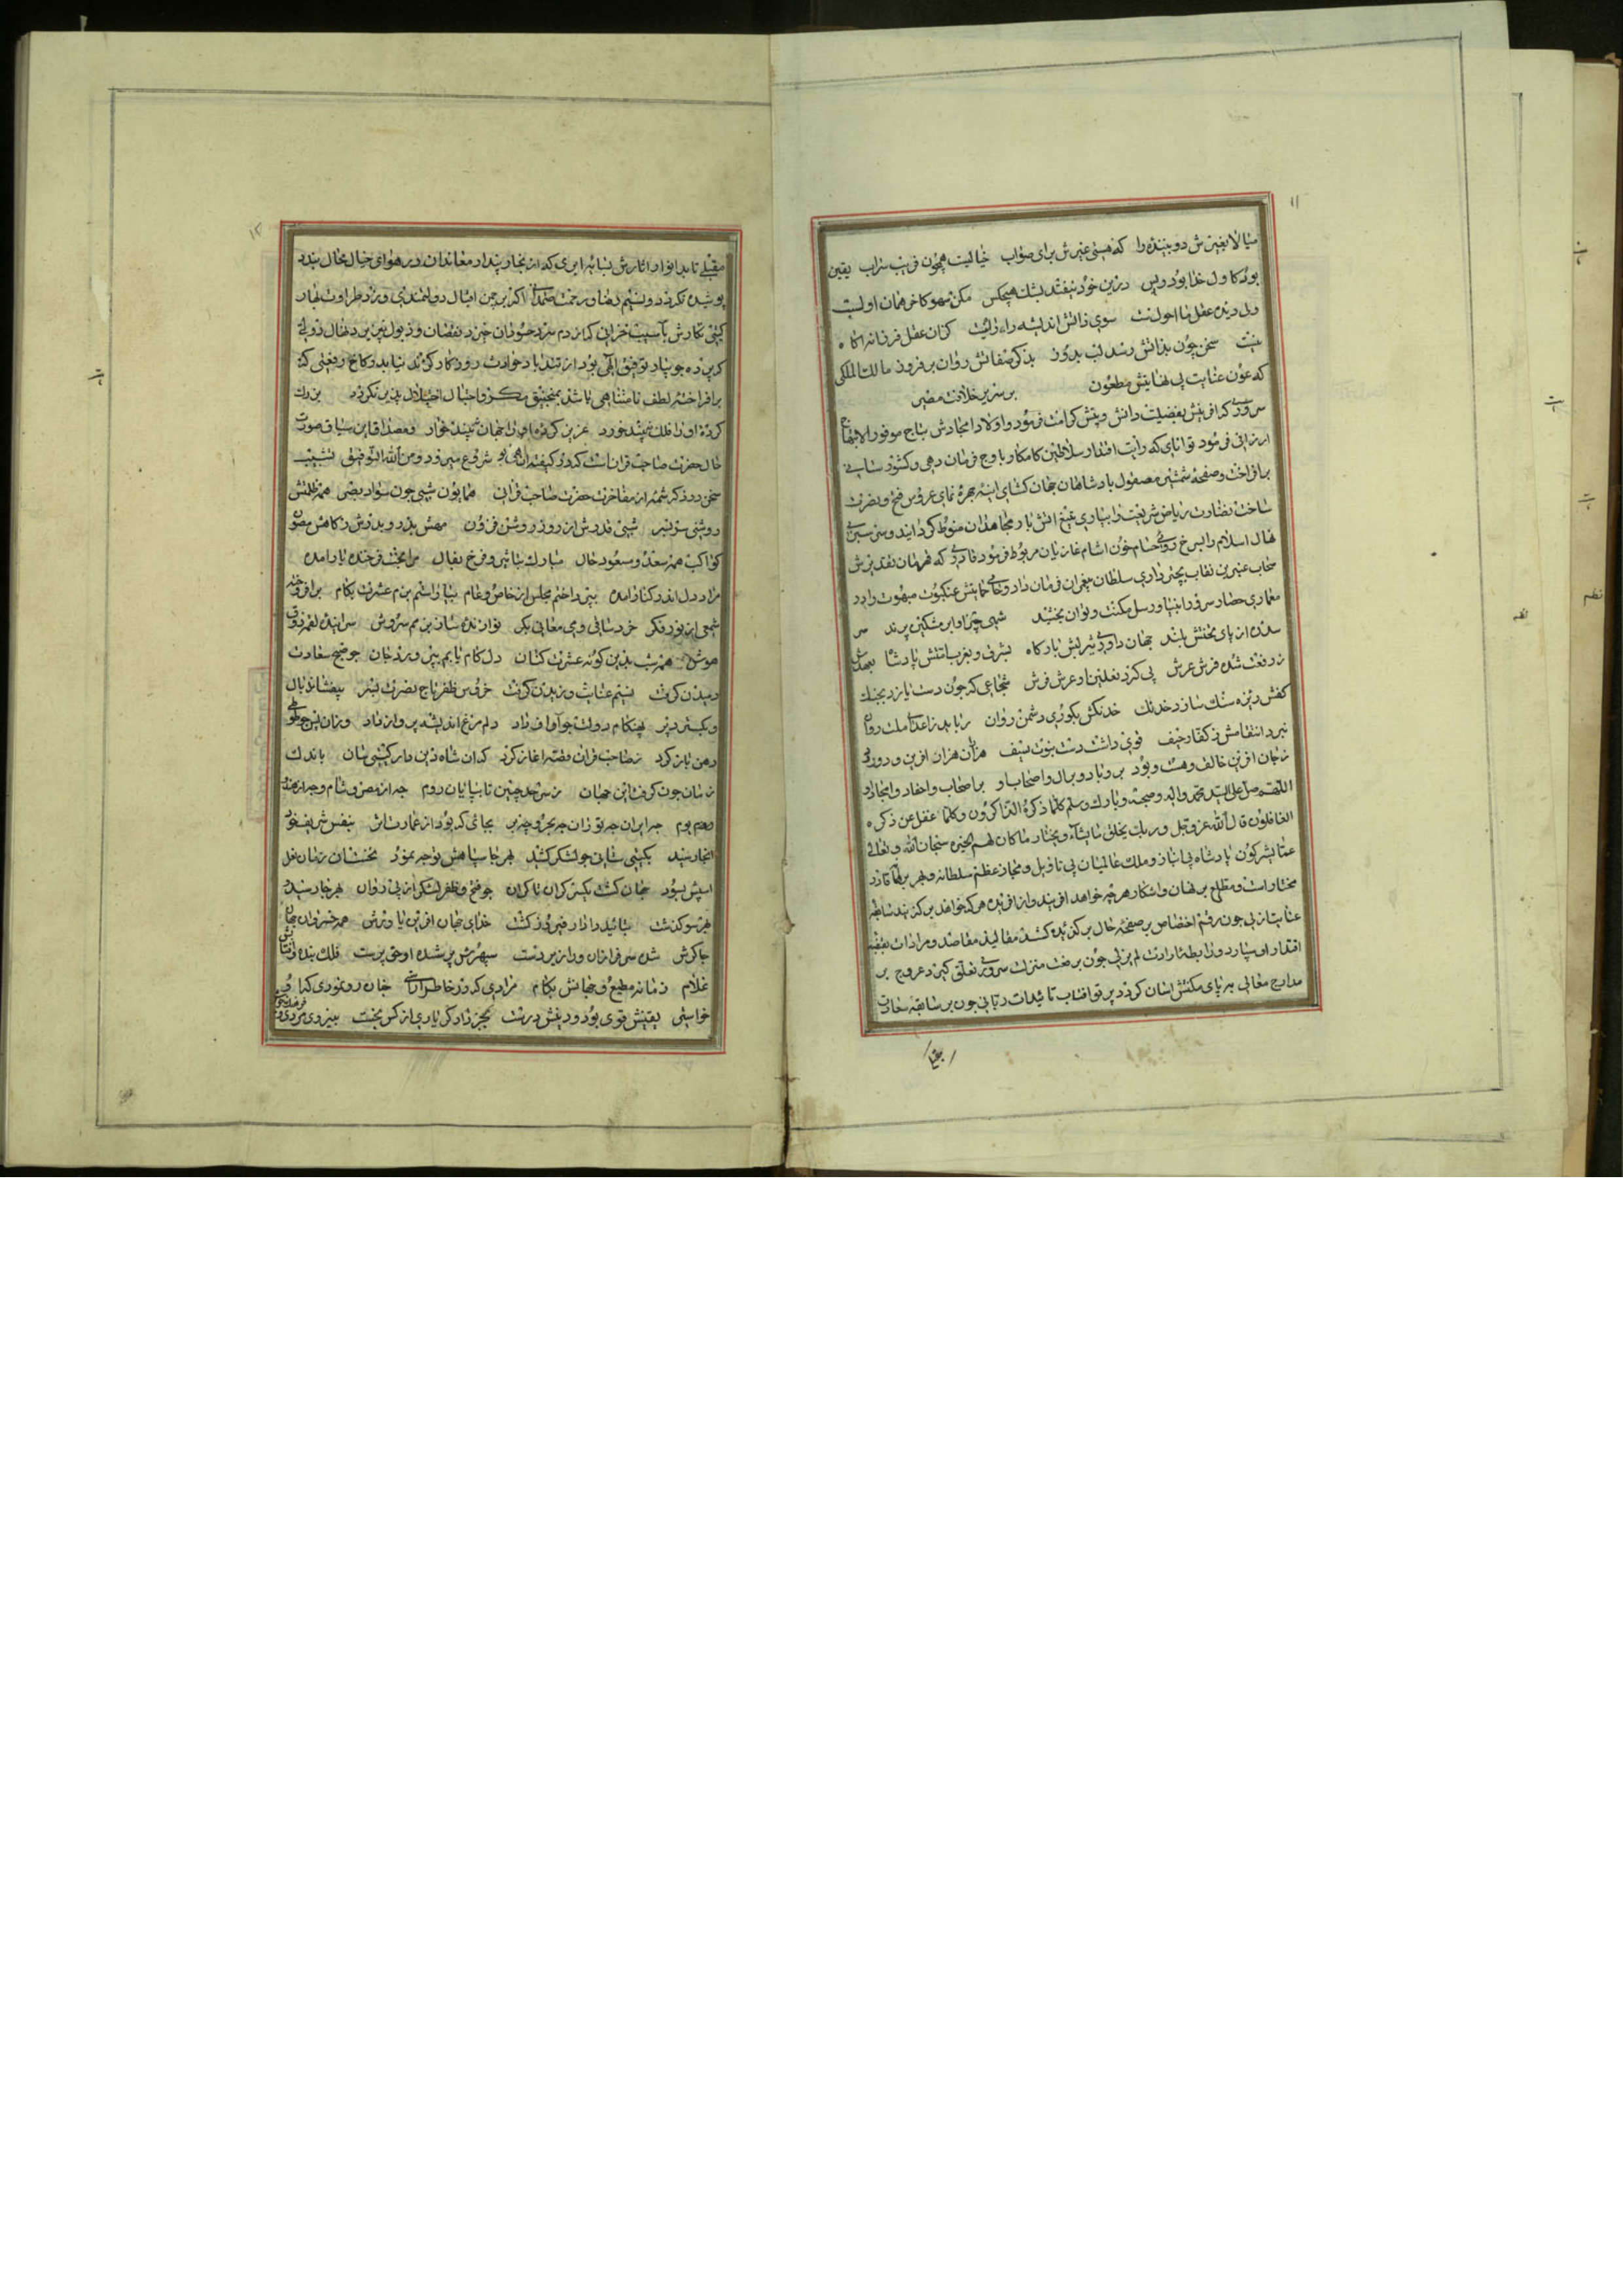 ۱۱
میالا بغیرش دو بیننده را که هستی غیرش برای صواب خیالیست همچون فریب سراب یقین
بود کاول خدا بود و پس درین خود نیفتد بشک هیچکس مکن سهو کاخر همان اولست
ولی دیده عقل ما احولست سوی ذاتش اندیشه را راه نیست کزان عقل فرزانه آگاه
نیست سخن چون بذاتش رسد لب بدوز بذکر صفاتش روان برفروز مالک الملکی
که عون عنایت بی نهایتش مطعون بر سریر خلافت مصر
سروری که آفرینش بفضیلت دانش و بینش کرامت فرمود و اولاد امجادش بتاج موفور الابتهاج
ارزانی فرمود توانایی که رایت اقتدار سلاطین کامکار باوج فرمان دهی و کشور ستانی
برافراخت و صفحه شمشیر مصقول پادشاهان جهان کشای آینه چهره نمای عروس فتح و نصرت
ساخت نضارت ریاض شریعت را بیاری تیغ آتش بار مجاهدان منوط گردانید و سرسبزی
نهال اسلام را بسرخ رویی حسام خون آشام غازیان مربوط فرمود قادری که قهرمان تقدیرش
سحاب عنبرین نقاب بچتر داری سلطان پیغمبران فرمان داد و حامی حمایتش عنکبوت مبهوت را در
معماری حصار سرور انبیا و رسل مکنت و توان بخشید شهی چتر او ابر مشکین پرند سر
سدره از پای تختش بلند جهان داوری یثربش بارگاه بشرق و بغرب امتش پادشا بعهدش
ز رفعت شده فرش عرش پی گرد نعلین او عرش فرش شجاعی که چون دست یازد بجنگ
کفش ریزه سنگ سازد خدنگ خدنگش بکوری دشمن روان رباید ز اعدای ملت روان
نبرد انتقامش ز کفار حیف قوی داشت دست نبوت بسیف هزاران هزار آفرین و درود
ز جان آفرین خالق هست و بود برو باد و بر آل و اصحاب او بر اصحاب و احفاد و امجاد او
اللهم صل علی السید محمد و آله و صحبه و بارک و سلم کلما ذکره الذاکرون و کلما غفل عن ذکره
الغافلون قال الله عز و جل و ربک یخلق ما یشآء و یختار ما کان لهم الخیرة سبحان الله و تعالی
عما یشرکون پادشاه بی انباز و ملک عالمیان بی تاویل و مجاز عظم سلطانه و بهر برهانه قادر
مختار است و مطلع بر نهان و آشکار هرچه خواهد آفریند و از آفریده هرکه خواهد برگزیند
عنایت ازلی چون رقم اختصاص بر صفحه حال برگزیده کشد مقالید مقاصد و مرادات بقبضه
اقتدار او سپارد و رابطه ارادت لم یزلی چون برفعت منزلت سروری تعلق گیرد عروج بر
مدارج معالی به پای مکنتش آسان گردد پرتو آفتاب تائیدات ربانی چون بر سابقه سعادت
۱۲
مقبلی تابد انوار آثارش بتیره ابری که از بخار پندار معاندان در هوای خیال محال بندد
پوشیده نگردد و نسیم رضا و رحمت صمدانی اگر بر چمن اقبال دولتمندی وزد طراوت بهار
گیتی نگارش بآسیب خزانی که از دم سرد حسودان خیزد نقصان و ذبول نپذیرد نهال دولتی
که پرورده جویبار توفیق الهی بود از تندباد حوادث روزگار گزند نیابد و کاخ رفعتی که
برافراخته لطف نامتناهی باشد بمنجنیق مکر و احتیال اختلال پذیر نگردد بزرگ
کرده او را فلک نبیند خورد عزیز کرده او را جهان نبیند خوار و مصداق این سیاق صورت
حال حضرت صاحب قران است که در کیفیت آن شروع میرود و من الله التوفیق تشبیب
سخن در ذکر شمه از مفاخرت حضرت صاحب قران همایون شبی چون سواد بصر همه ظلمتش
روشنی سر بسر شبی قدرش از روز روشن فزون مهش بدر و بدرش ز کاهش مصون
کواکب همه سعد و مسعود حال مبارک بتاثیر و فرخ بفال مرا بخت فرخنده یار آمده
مراد دل اندر کنار آمده بپرداختم مجلس از خاص و عام بیاراستم بزم عشرت بکام برافروخته
شمعی از نور فکر خرد ساقی و می معانی بکر نوازنده ساز بزمم سروش سراینده نغمه ذوق
هوش همه شب بدین گونه عشرت کنان دل کام یابم پی ورد جان چو صبح سعادت
دمیدن گرفت نسیم عنایت وزیدن گرفت خروس ظفر تاج نصرت بسر بیفشاند بال
و بگسترد پر بهنگام دولت چو آواز داد دلم مرغ اندیشه پرواز داد وزان پس چو طوطی
دهن باز کرد ز صاحب قران قصه آغاز کرد که آن شاه دین دار گیتی ستان باندک
زمان چون گرفت این جهان ز سرحد چین تا بپایان روم چه از مصر و شام و چه از هند
وهم بوم چه ایران چه توران چه بحر و چه بر بجائی که بود از عمارت اثر بنفس شریف خود
آنجا رسید بگیتی ستانی چو لشکر کشید بهر جا سپاهش توجه نمود نخستان زمان نعل
اسپش بسود جهان گشت یکسر کران تا کران چو فتح و ظفر لشکر از پی روان بهر جا رسید و
بهر سو گذشت بتائید دادار فیروز گشت خدای جهان آفرین یاورش همه خسروان جهان
چاکرش شده سرفرازان ورا زیردست سپهرش پرستنده او حق پرست فلک بنده آفتابش
غلام زمانه مطیع و جهانش بکام مرادی که در خاطر آراستی چنان رو نمودی که او
خواستی یقینش قوی بود و دینش درست بجز زاد کر یاری از کس نجست بنیروی مردی و